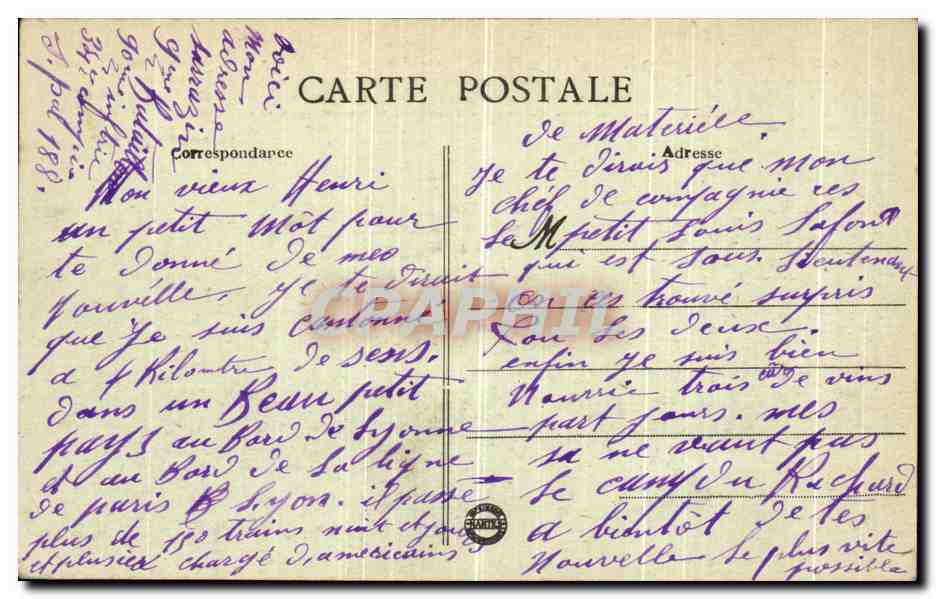 CARTE POSTALE
Correspondance
Adresse
Voici
mon
adresse
Sarrazin
S. pal 188.
Mon vieux Henri
un petit Môt pour
te donné de mes
Nouvélle, Je te dirait
que Je suis cantonné
a 4 Kilomtre de sens.
dans un Beau petit
pays au Bord de Lyonne
et au Bord de La ligne
de paris B Lyon. il passe
plus de 150 trains nuit et jours
et plusieur chargé d'americains
de Materiéle.
Je te dirais que mon
chéf de compagnie ces
Le M petit Louis Lafont
qui est sous. Lieutenant
On es trouvé surpris
Tou les deux.
enfin Je suis bien
Nourrie trois car de vins
part jours. mes
sa ne vaut pas
Le camp du Ruchard
a bientôt de tes
Nouvelle Le plus vite
possible
NANTES
CPAPHIL